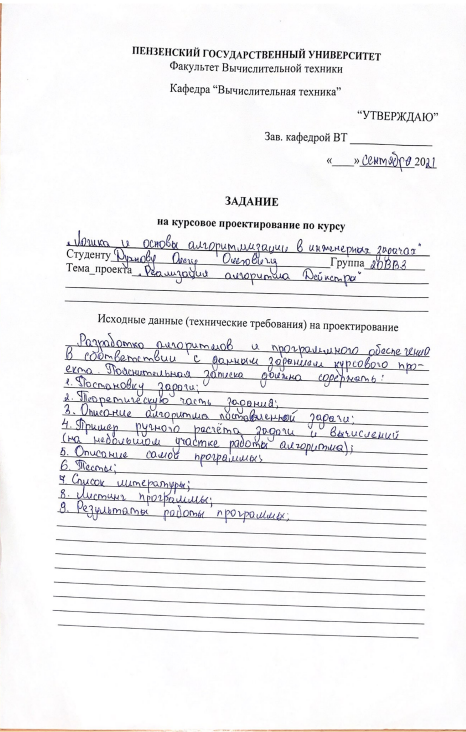 ПЕНЗЕНСКИЙ ГОСУДАРСТВЕННЫЙ УНИВЕРСИТЕТ
Факультет Вычислительной техники
Кафедра “Вычислительная техника”
“УТВЕРЖДАЮ”
Зав. кафедрой ВТ
«____» сентября 2021
ЗАДАНИЕ
на курсовое проектирование по курсу
„Логика и основы алгоритмизации в инженерных задачах“
Студенту Олегу Олеговичу Группа 20ВВ3
Тема проекта „Реализация алгоритма Дейкстра“
Исходные данные (технические требования) на проектирование
Разработка алгоритмов и программного обеспечения
в соответствии с данным заданием курсового про-
екта. Пояснительная записка должна содержать:
1. Постановку задачи;
2. Теоретическую часть задания;
3. Описание алгоритма поставленной задачи;
4. Пример ручного расчёта задачи и вычислений
(на небольшом участке работы алгоритма);
5. Описание самой программы;
6. Тесты;
7. Список литературы;
8. Листинг программы;
9. Результаты работы программы;